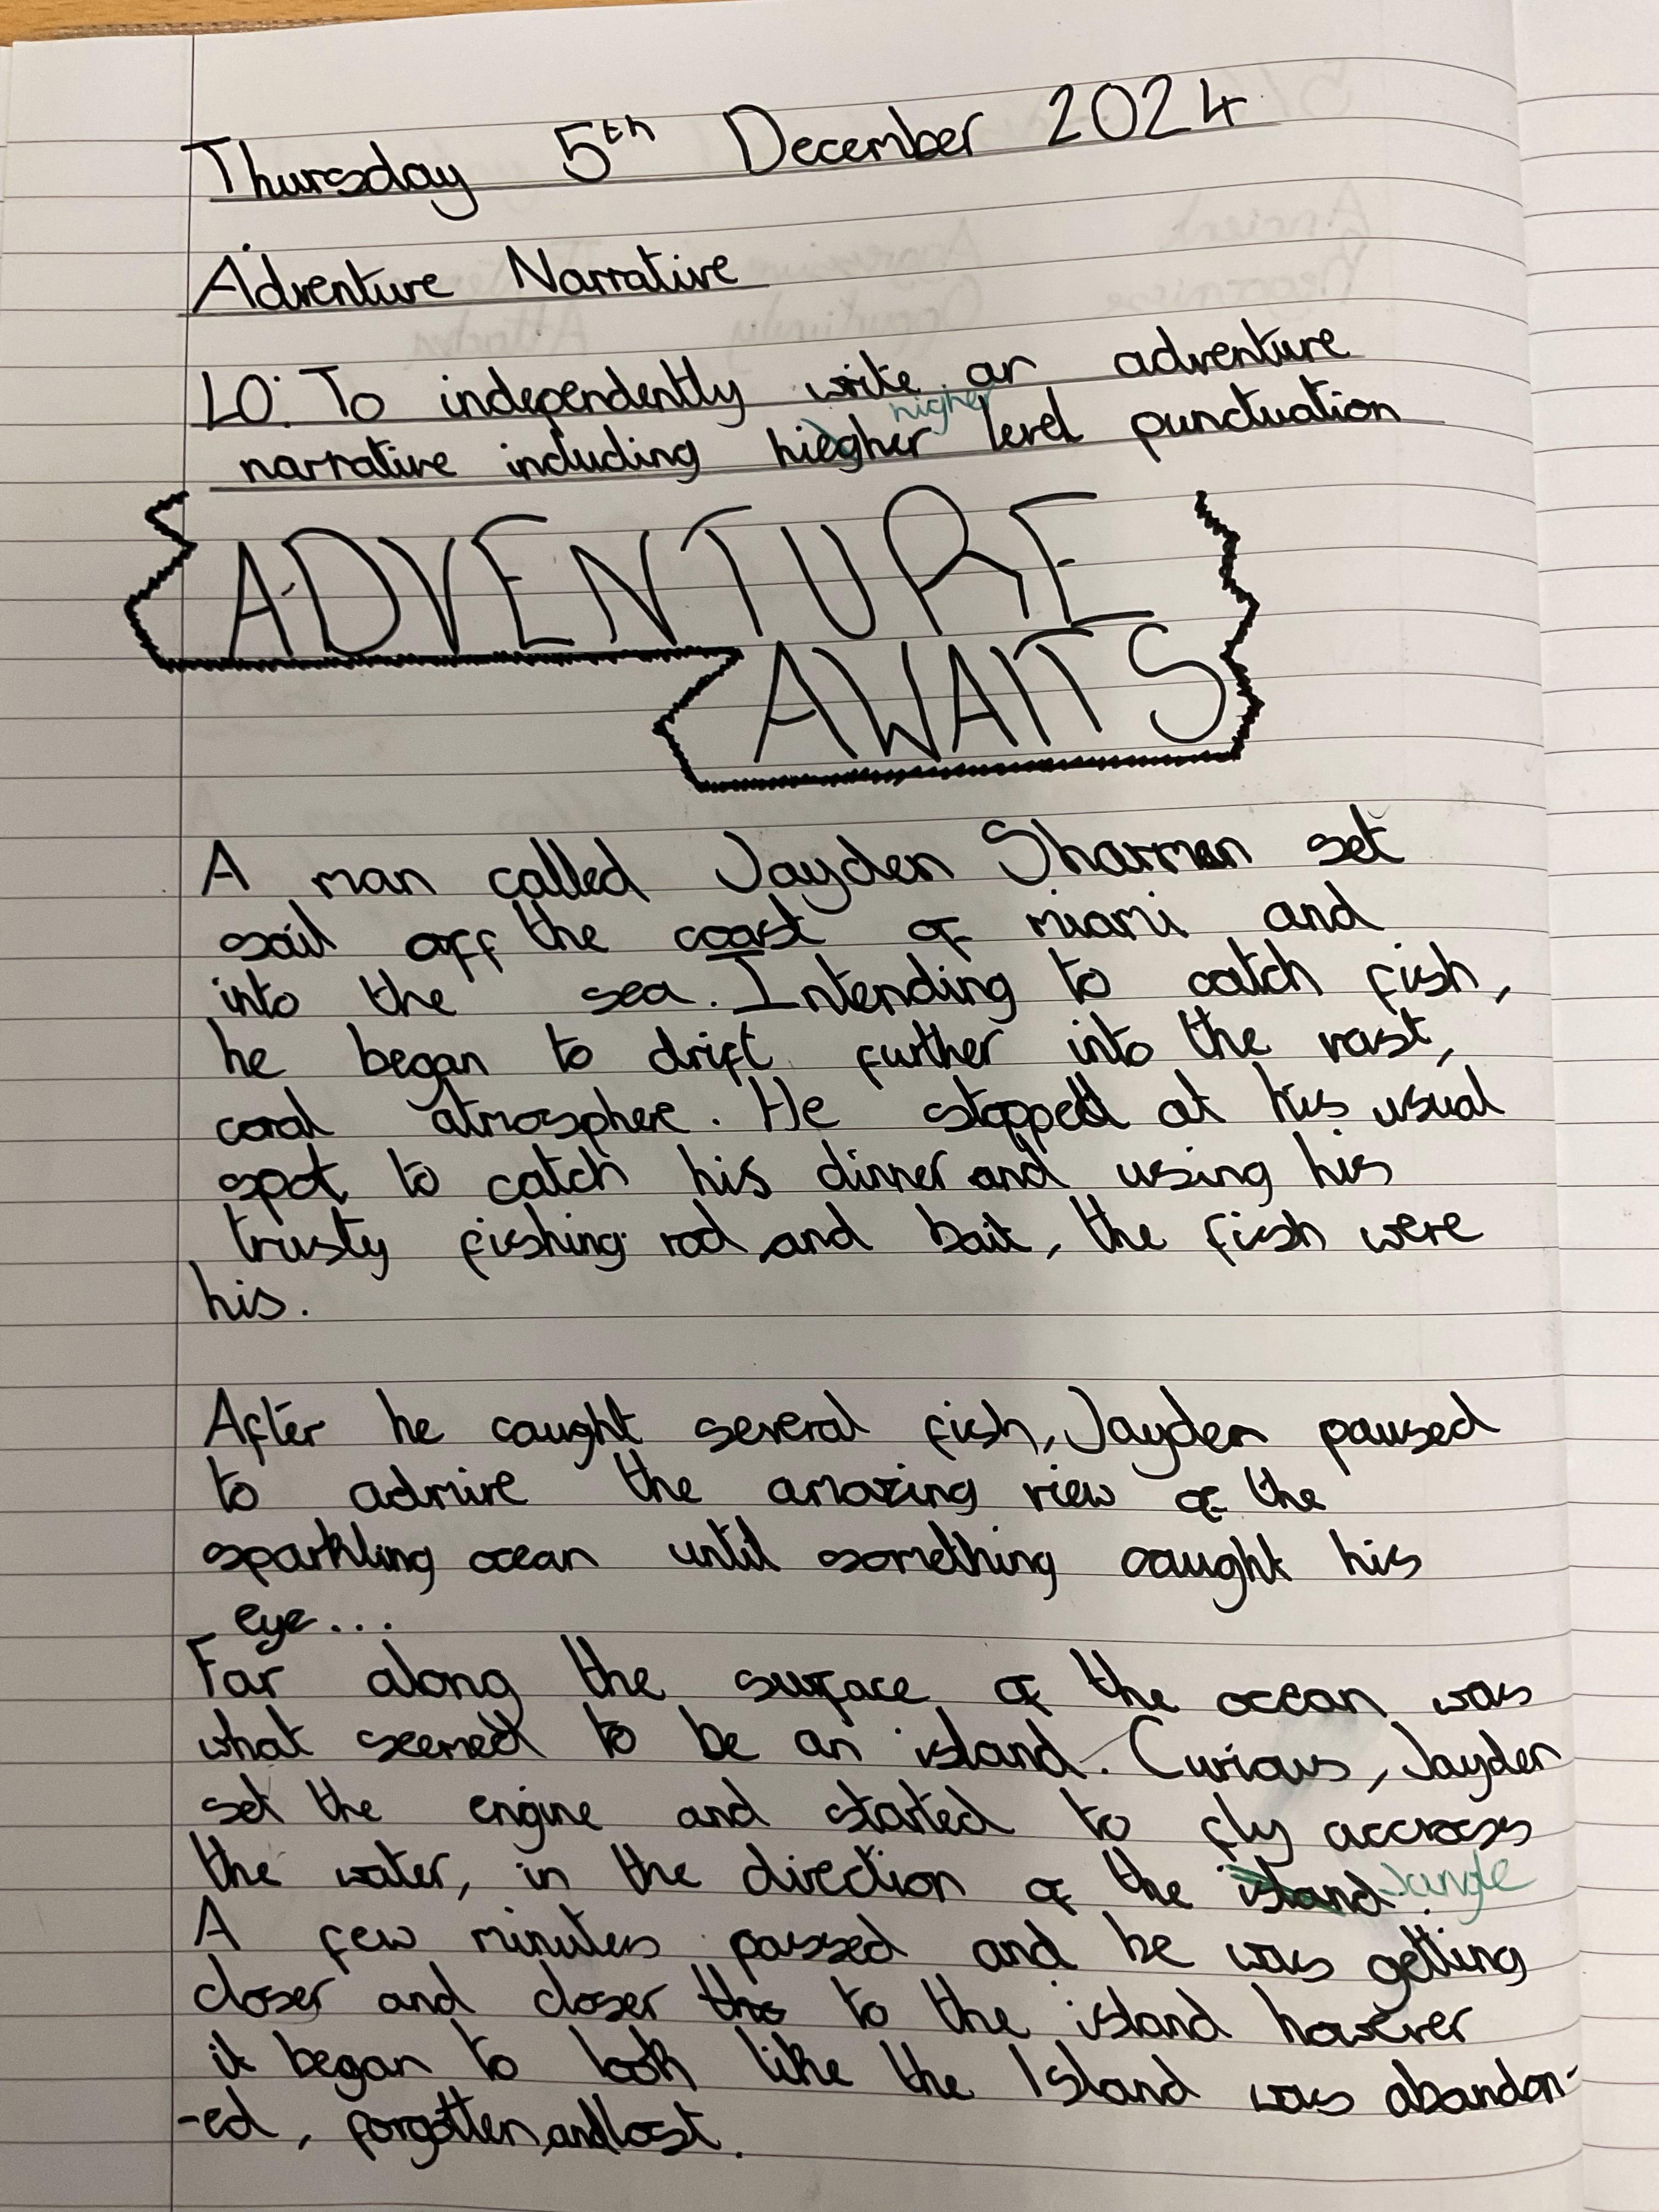 Thursday 5th December 2024
Adventure Narrative
LO: To independently write an adventure
higher
narrative including hiegher level punctuation
ADVENTURE
AWAITS
A man called Jayden Sharman set
sail off the coast of miami and
into the sea. Intending to catch fish,
he began to drift further into the vast,
coral atmosphere. He stopped at his usual
spot to catch his dinner and using his
trusty fishing rod and bait, the fish were
his.
After he caught several fish, Jayden paused
to admire the amazing view of the
sparkling ocean until something caught his
eye...
Far along the surface of the ocean was
what seemed to be an island. Curious, Jayden
set the engine and started to fly accross
the water, in the direction of the island Jungle.
A few minutes passed and he was getting
closer and closer tho to the island however
it began to look like the Island was abandon-
-ed, forgotten,and lost.